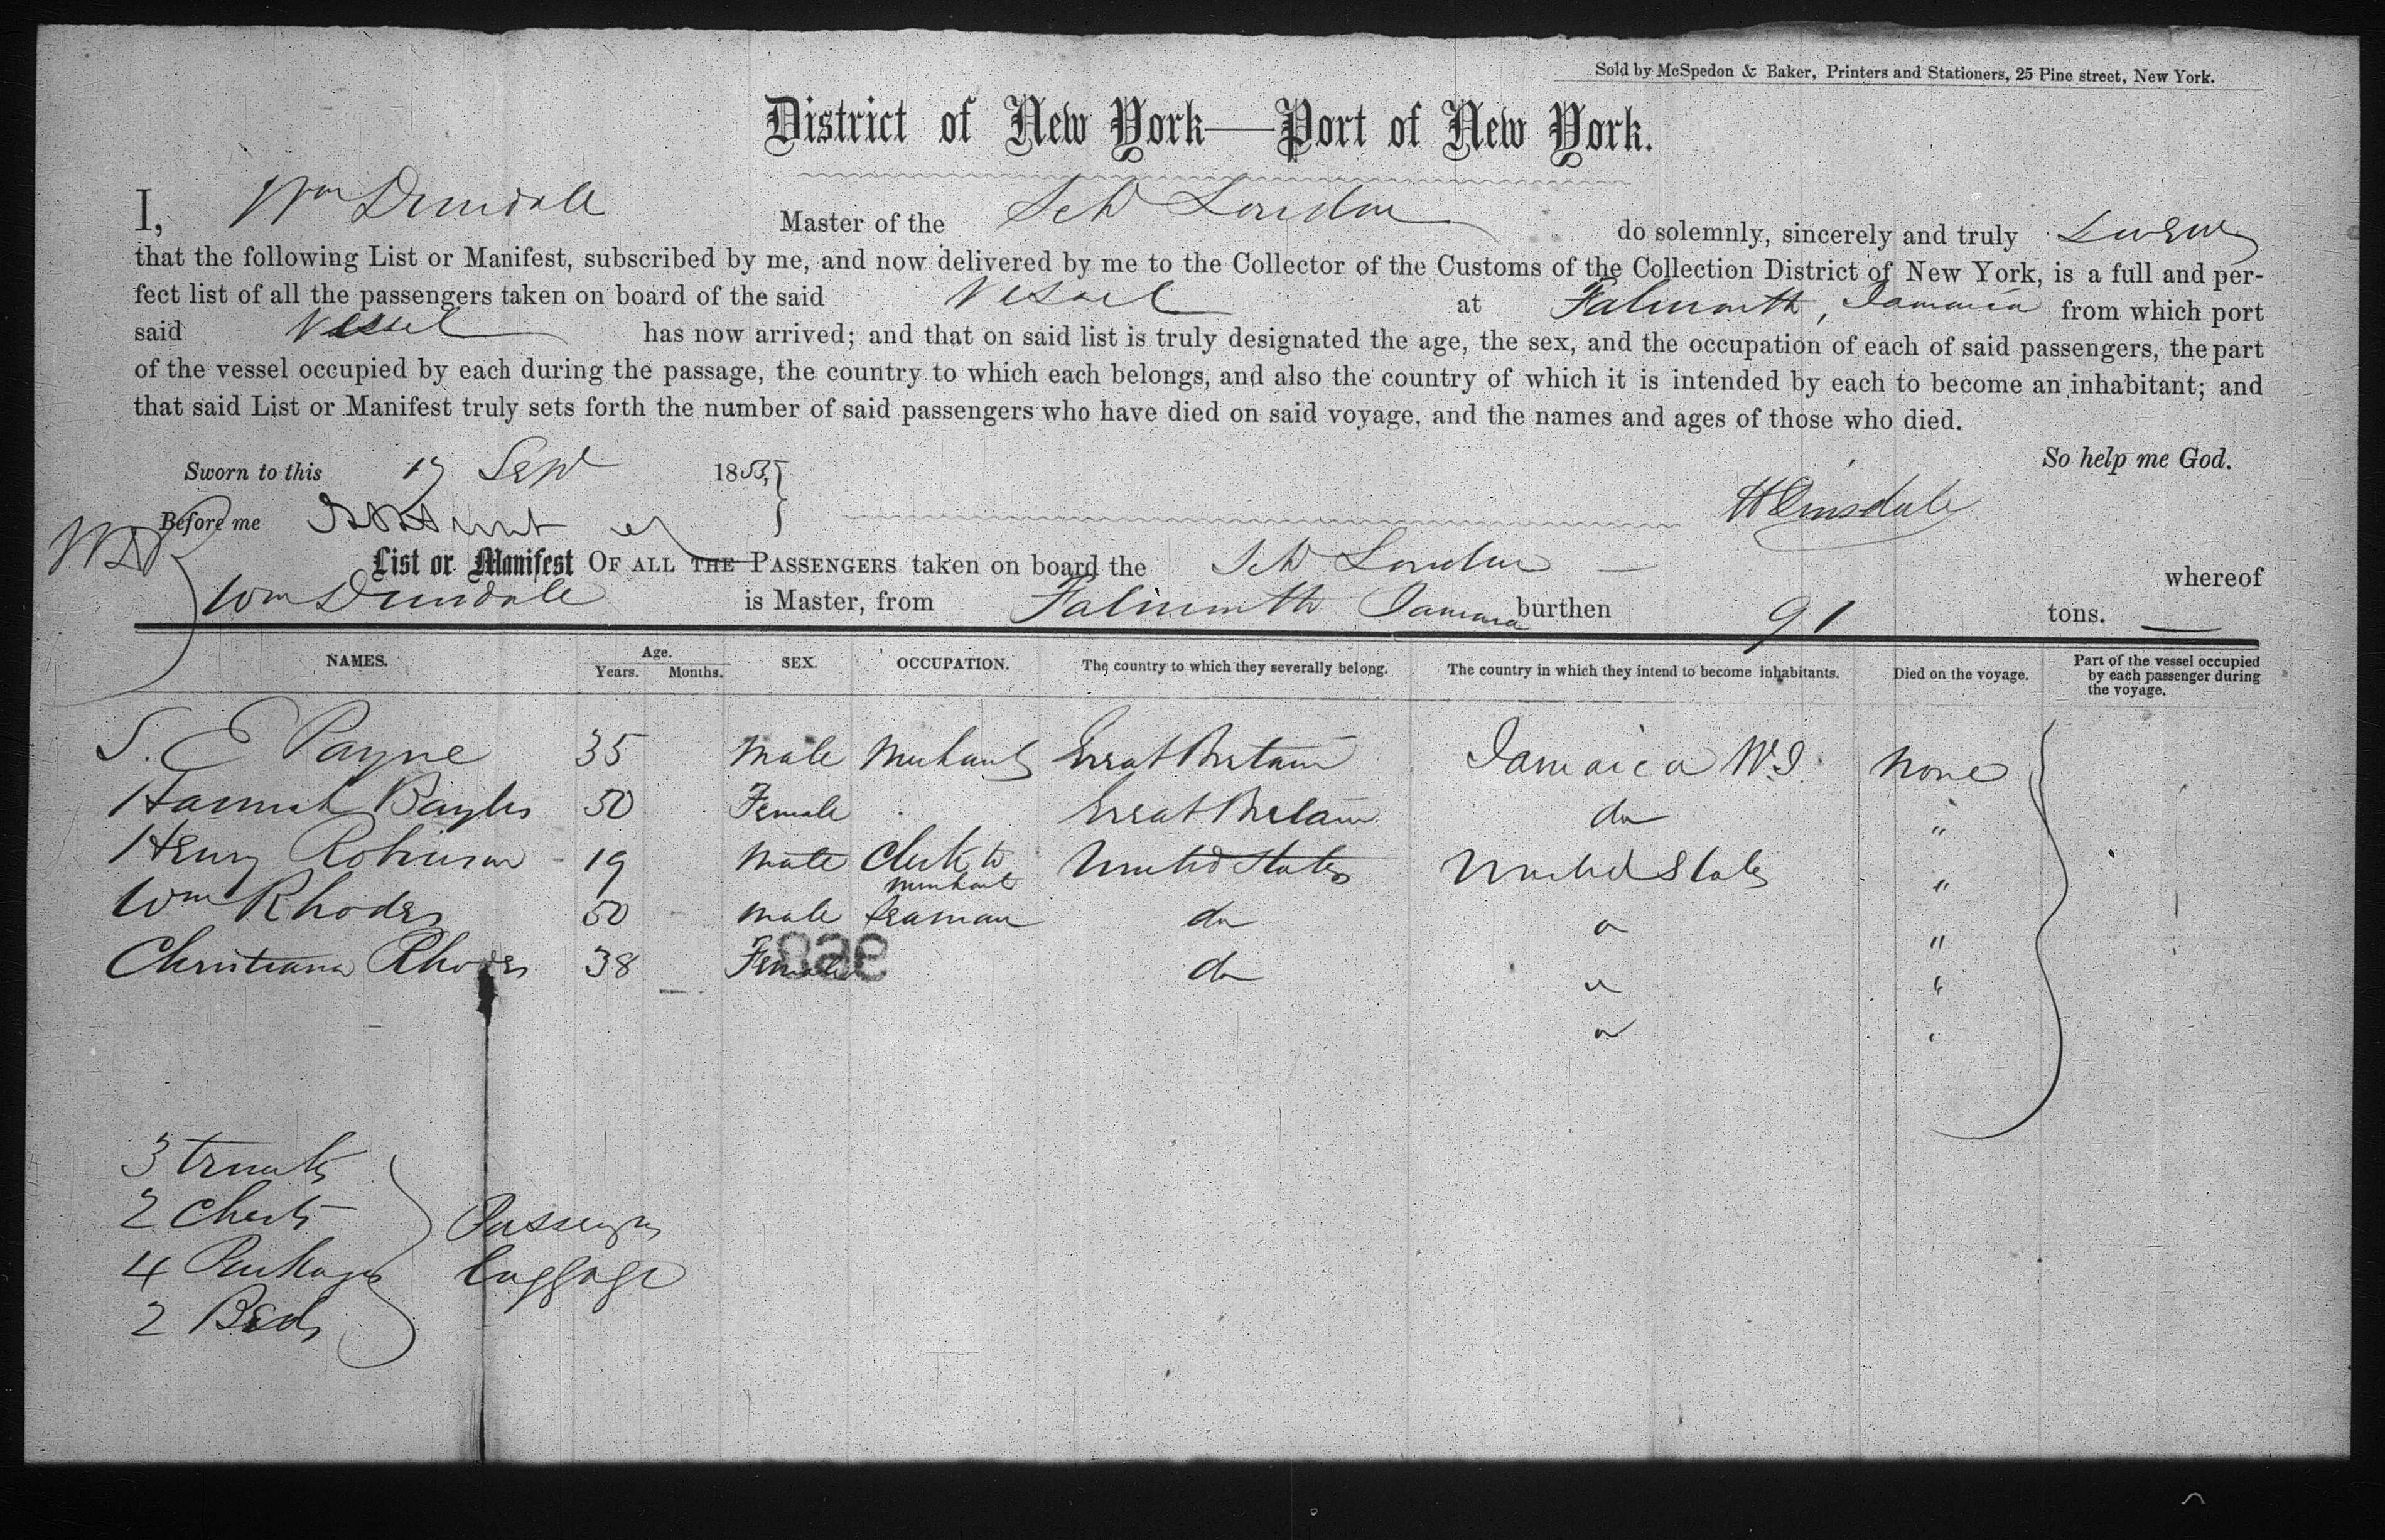 Sold by McSpedon & Baker, Printers and Stationers, 25 Pine street, New York.
District of New York—Port of New York.
I, Wm Dinsdale Master of the Sch London do solemnly, sincerely and truly swear
that the following List or Manifest, subscribed by me, and now delivered by me to the Collector of the Customs of the Collection District of New York, is a full and per-
fect list of all the passengers taken on board of the said Vessel at Falmouth, Jamaica from which port
said Vessel has now arrived; and that on said list is truly designated the age, the sex, and the occupation of each of said passengers, the part
of the vessel occupied by each during the passage, the country to which each belongs, and also the country of which it is intended by each to become an inhabitant; and
that said List or Manifest truly sets forth the number of said passengers who have died on said voyage, and the names and ages of those who died.
So help me God.
Sworn to this Sept 185
Before me
W Dinsdale
List or Manifest OF ALL THE PASSENGERS taken on board the Sch London whereof
Wm Dinsdale is Master, from Falmouth Jamaica burthen 91 tons.
NAMES. Age. Years. Months. SEX. OCCUPATION. The country to which they severally belong. The country in which they intend to become inhabitants. Died on the voyage. Part of the vessel occupied by each passenger during the voyage.
S. E Payne 35 male Merchant Great Britain Jamaica W.I. None
Hannah Bayles 50 Female Great Britain do "
Henry Robinson 19 male Clerk to merchant United States United States "
Wm Rhodes 50 male Seaman do " "
Christiana Rhodes 38 Female do " "
" "
968
3 trunks
2 Chests
4 Packages
2 Beds
Passengers
luggage